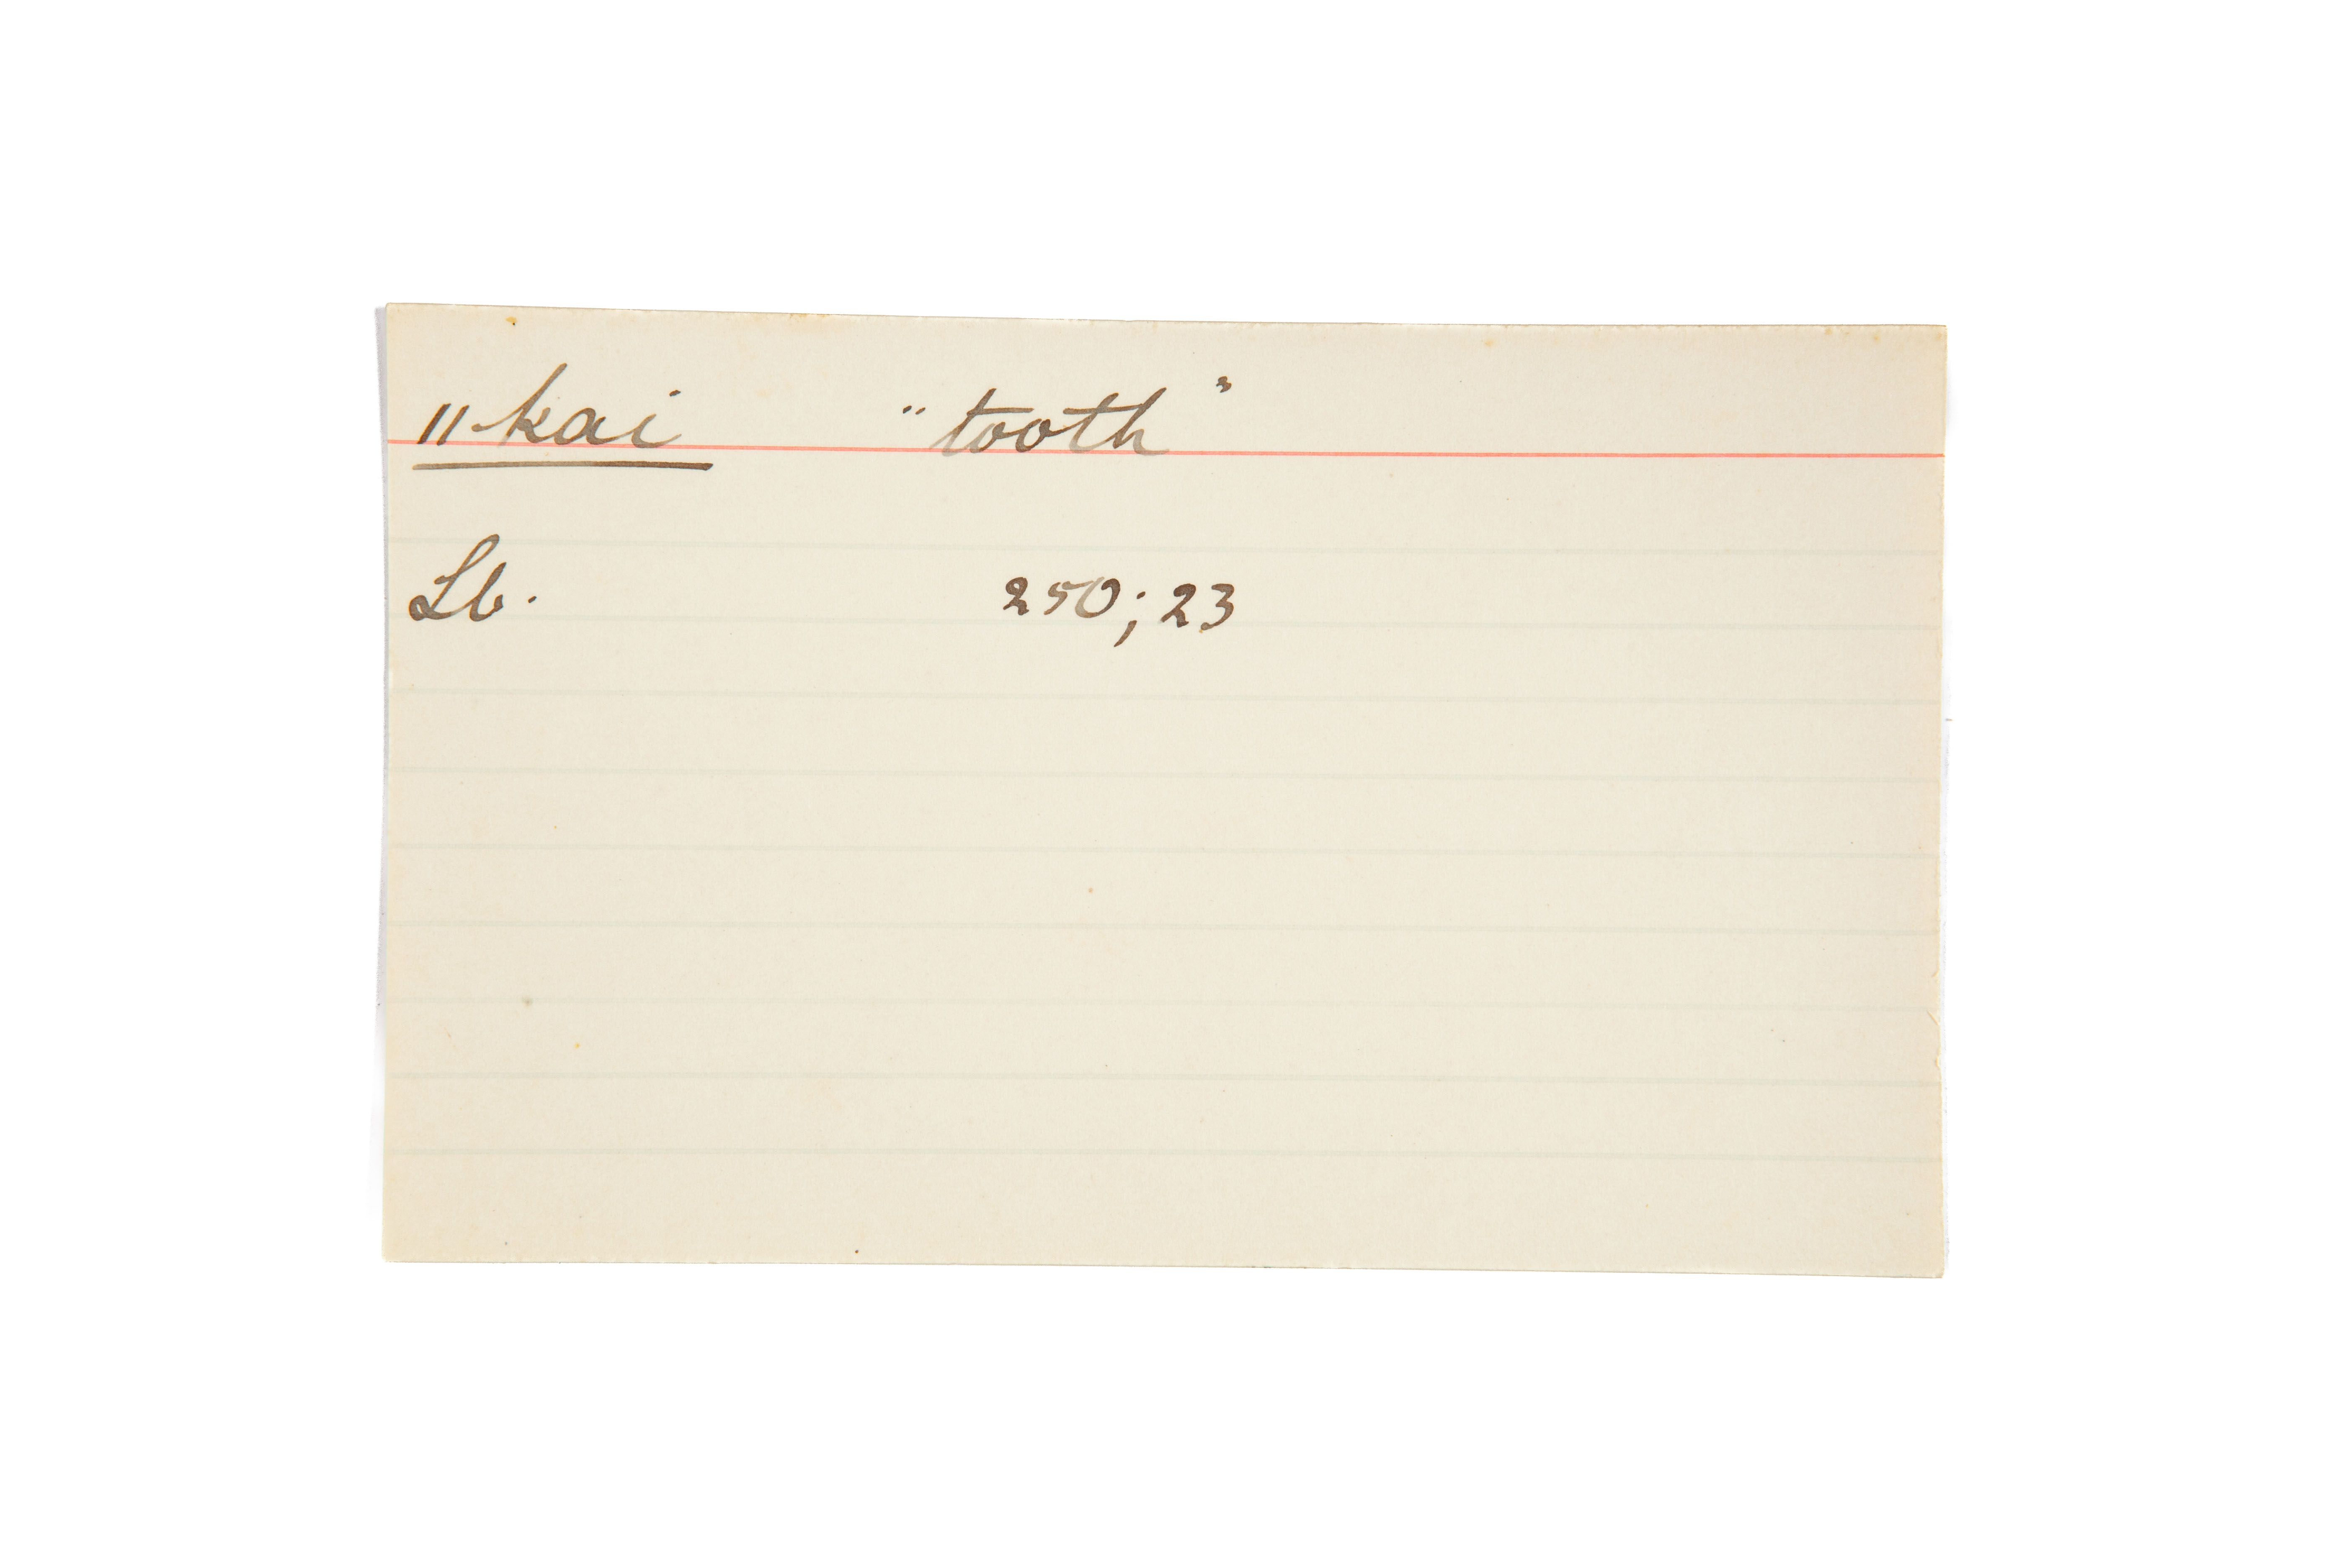 ǁkai "tooth"
Lb. 250; 23